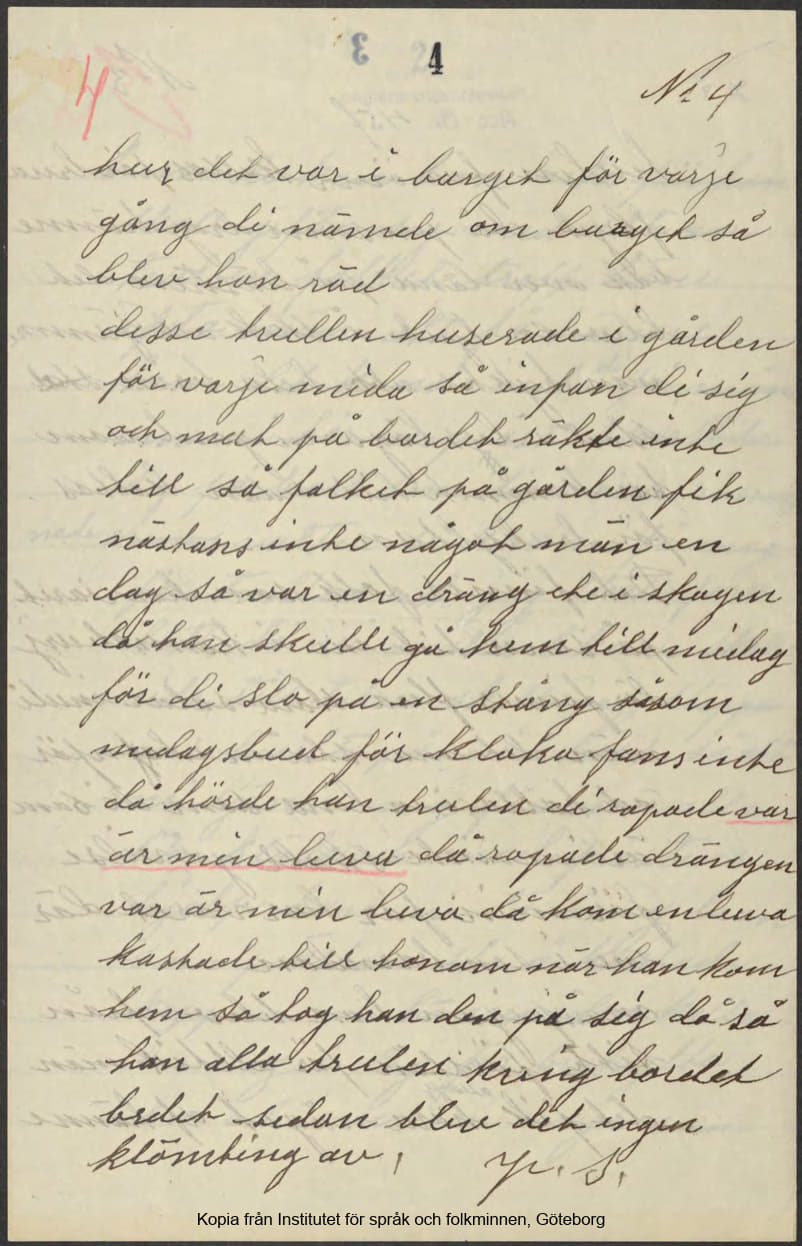 3 4
4 No 4
hur det var i barget för varje
gång di nämde om barget så
blev han räd
desse trullen huserade i gården
för varje mida så infan di sig
och mat på bordet räkte inte
till så folket på gården fik
nästans inte något män en
dag så var en dräng ute i skogen
då han skulle gå hem till midag
för di slo på en stång såsom
midagsbud för kloka fans inte
då hörde han trulen di ropade var
är min luva då ropade drängen
var är min luva då kom en luva
kastade till honom när han kom
hem så tog han den på sig då så
han alla trulen kring bordet
brdet sedan blev det ingen
klömting av,
Kopia från Institutet för språk och folkminnen, Göteborg